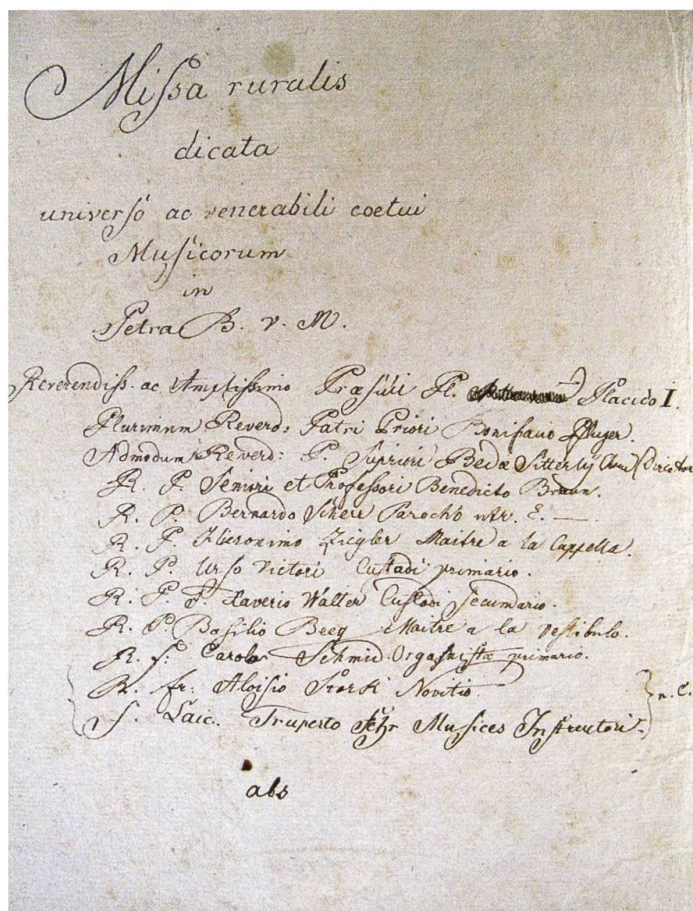 Missa ruralis
dicata
universo ac venerabili coetui
Musicorum
in
Petra B. v. M.
Reverendiss. ac Amplissimo Præsuli Pl. Placido I.
Plurimum Reverd: Patri Priori Bonifacio Pfluger.
Admodum Reverd: P. Supriori Bedæ Sitterly Chori Director
R. P. Seniori et Professori Benedicto Braun.
R. P. Bernardo Scherr Parocho
R. P. Hieronimo Ziegler Maitre a la Cappella.
R. P. Urso Victori Custodi primario.
R. P. F. Xaverio Walter Custodi secundario.
R. P. Basilio Beeg Maitre a la vestibulo.
R. f: Carolo Schmid Organistæ primario.
R. fr: Aloisio Stork Novitio
f. Laic. Truperto Musices Instructori
abs